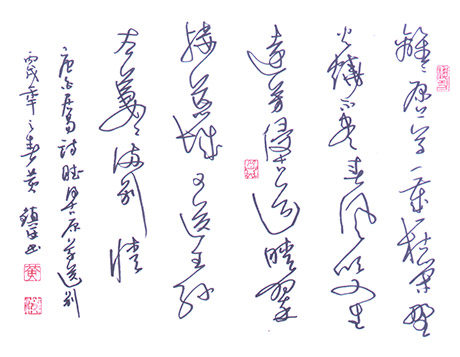 離離原上草一歲一枯榮野
火燒不盡春風吹又生
遠芳侵古道晴翠
接荒城又送王孫
去萋萋滿別情
唐白居易詩賦得古原草送別
丙戌年之春黃鎮